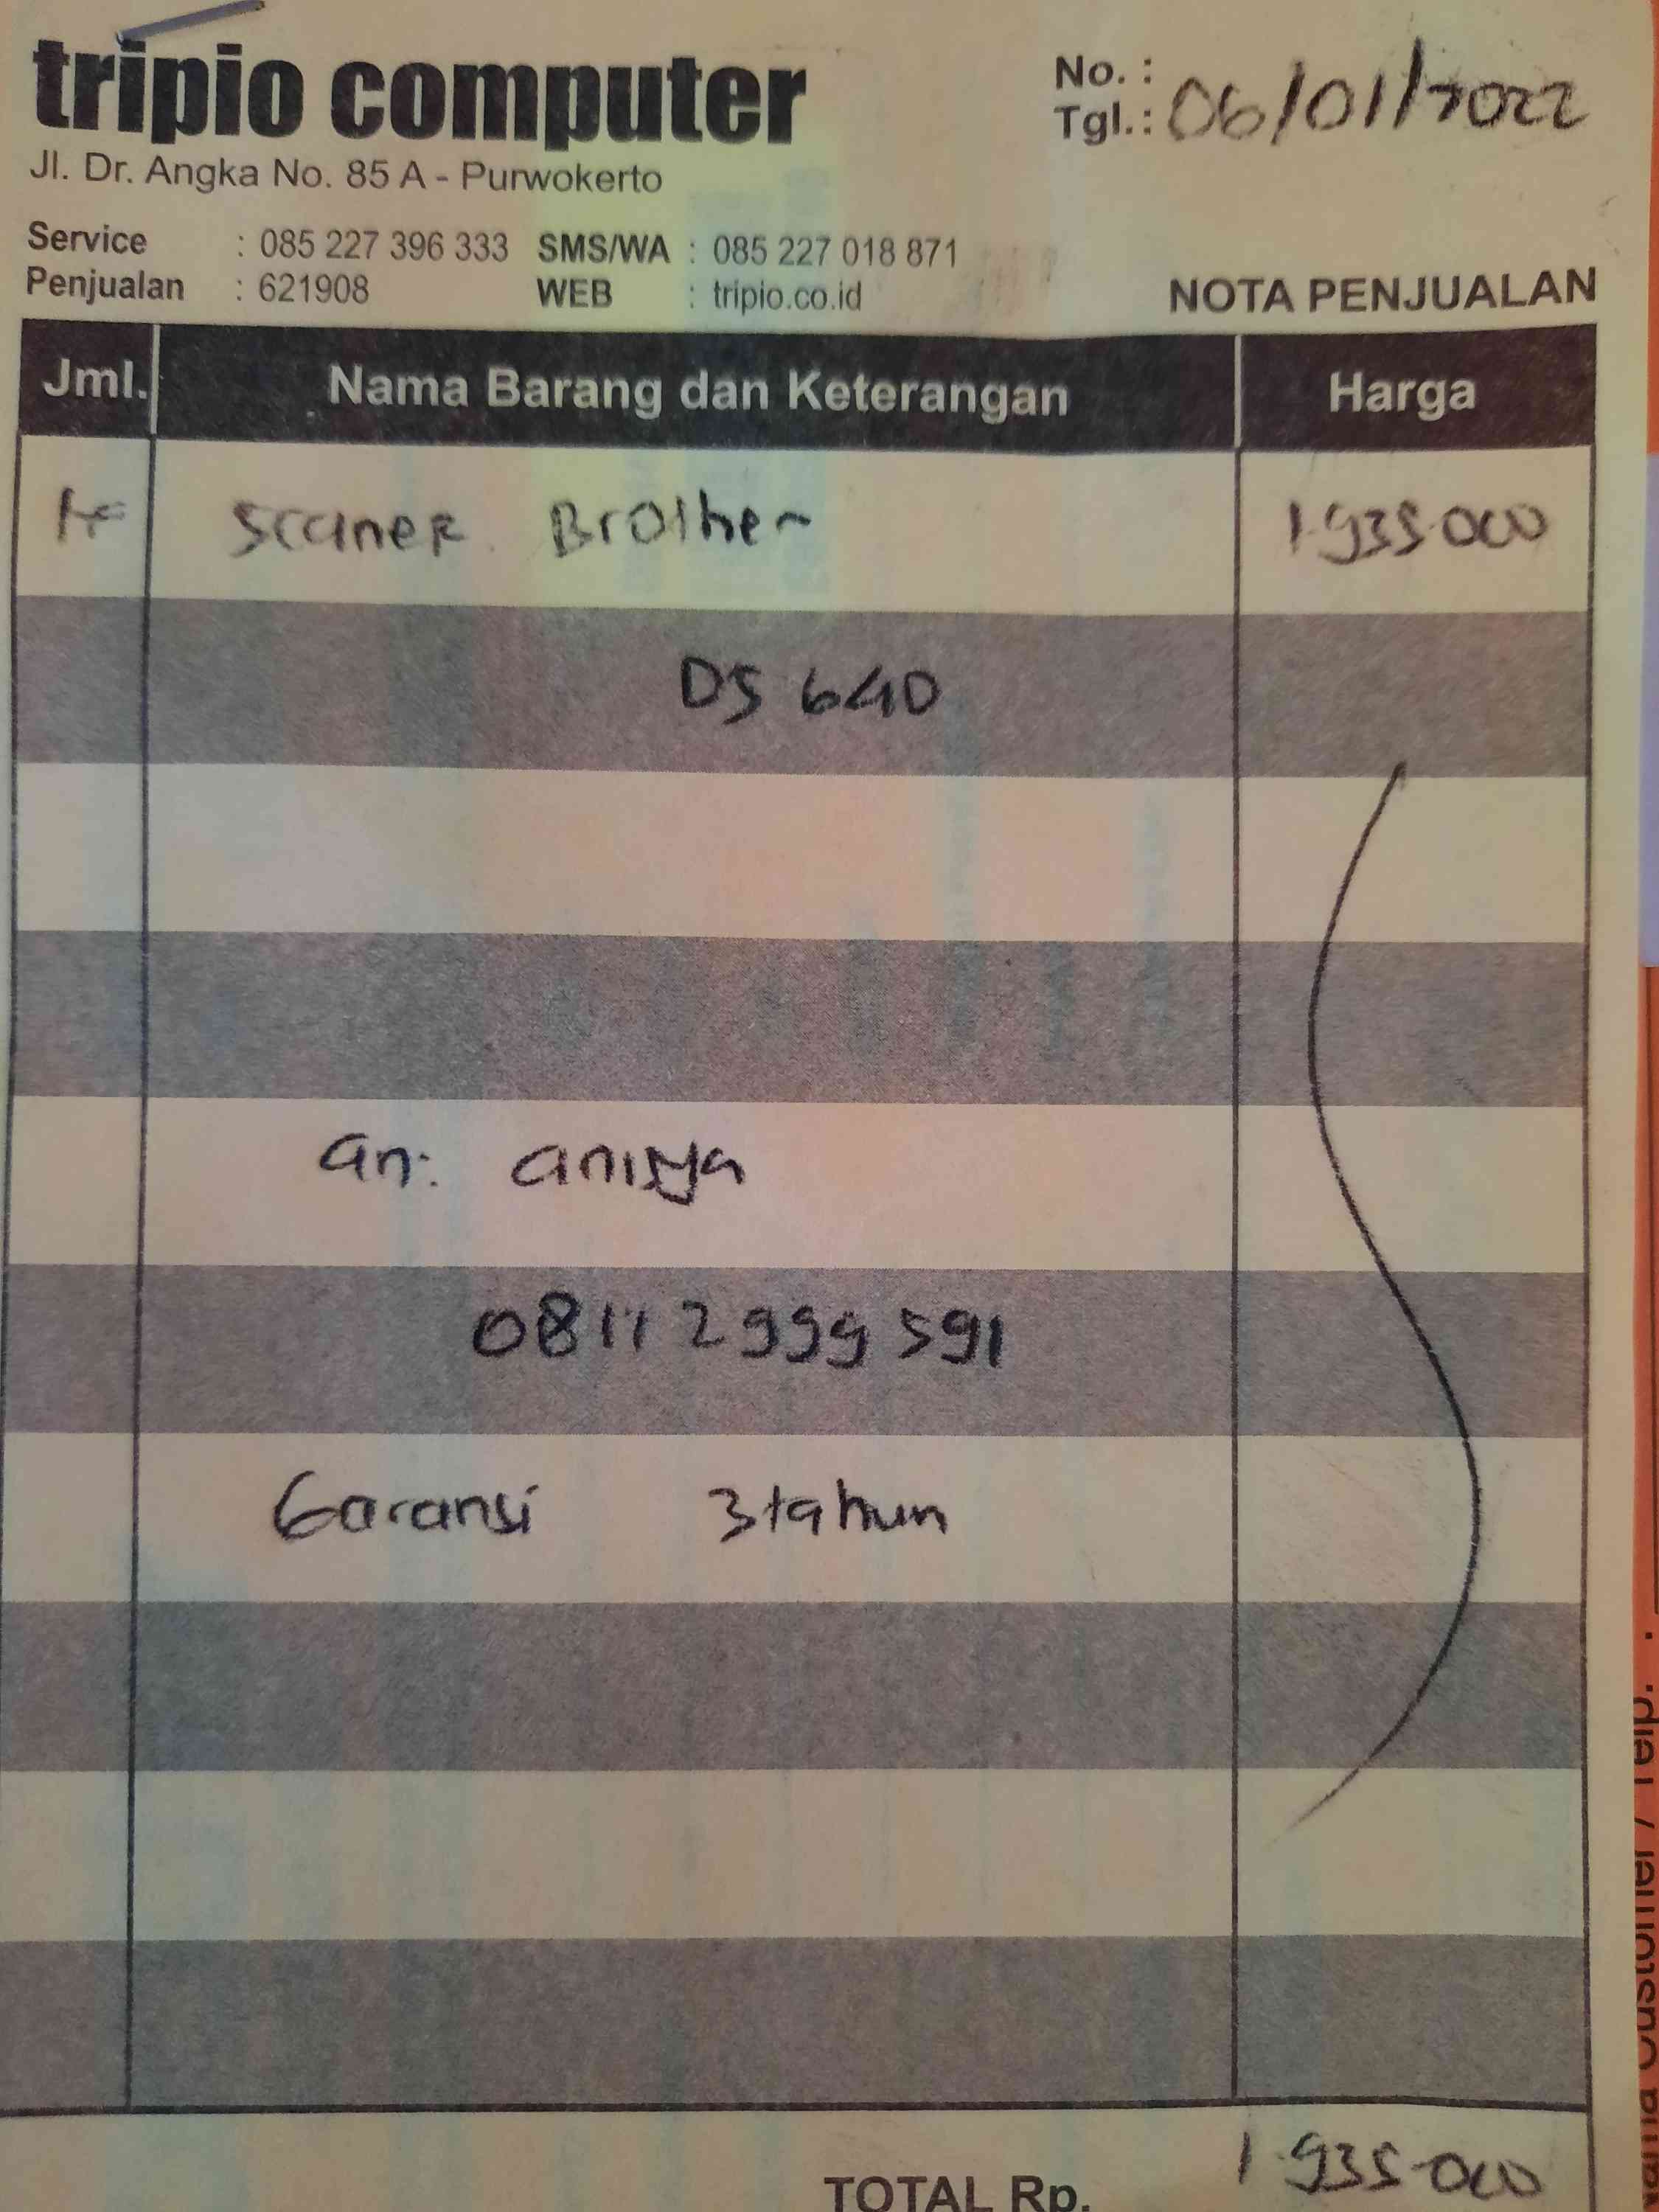 tripio computer
Jl. Dr. Angka No. 85 A - Purwokerto
No. :
Tgl. : 06/01/2022
Service : 085 227 396 333 SMS/WA : 085 227 018 871
Penjualan : 621908 WEB : tripio.co.id
NOTA PENJUALAN
Jml. Nama Barang dan Keterangan Harga
Scaner Brother 1.935.000
DS 640
an: anisya
0811 2999 591
Garansi 3 tahun
TOTAL Rp. 1.935.000